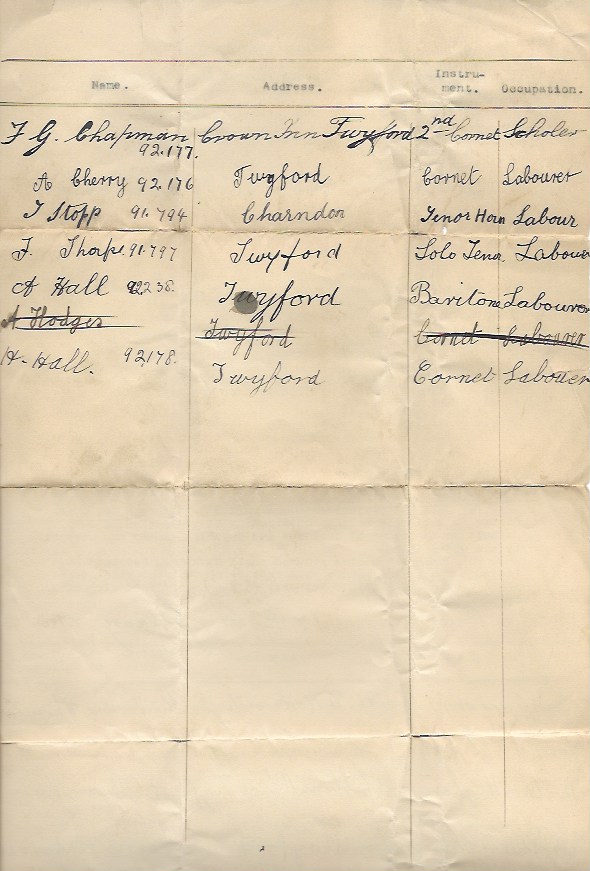 Name. Address. Instru-ment. Occupation.
F G. Chapman Crown Inn Twyford 2nd Cornet Scholer
92.177.
A Cherry 92.176 Twyford Cornet Labourer
T Stopp 91.794 Charndon Tenor Horn Labour
F. Tharp. 91.797 Twyford Solo Tenor Labour
A Hall 92238. Twyford Baritone Labourer
A Hodges Twyford Cornet Labourer
H. Hall. 92178. Twyford Cornet Labouer